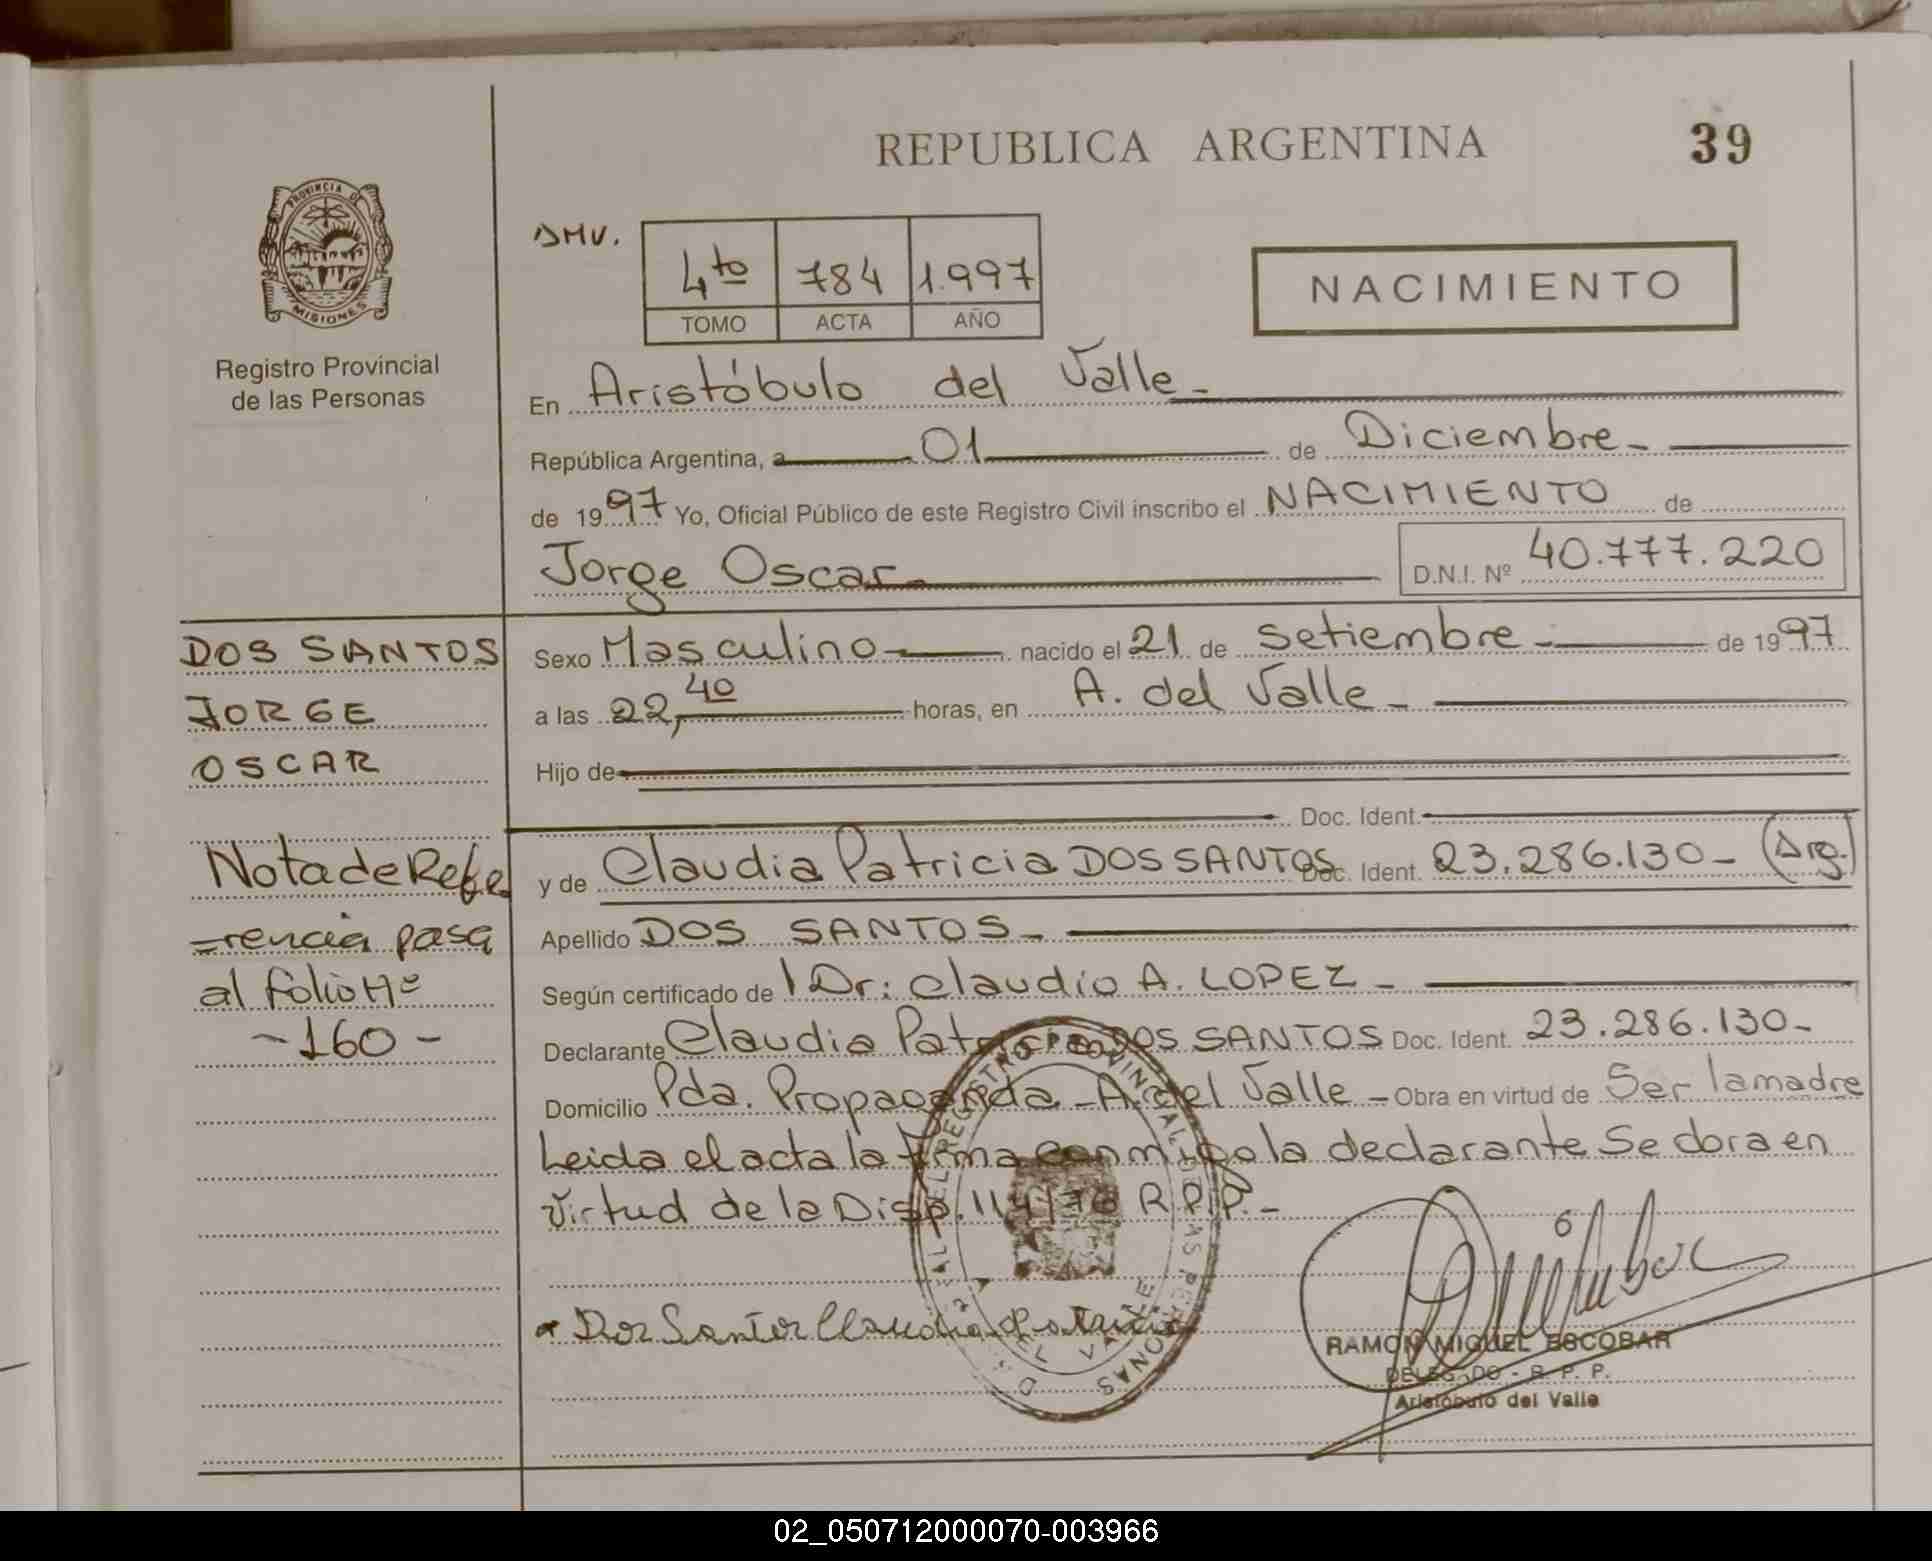 REPUBLICA ARGENTINA
39
PROVINCIA DE
MISIONES
Registro Provincial
de las Personas
DMV.
4to 784 1.997
TOMO ACTA AÑO
NACIMIENTO
En Aristóbulo del Valle-
República Argentina, a 01 de Diciembre-
de 1997 Yo, Oficial Público de este Registro Civil inscribo el NACIMIENTO de
Jorge Oscar-
D.N.I. Nº 40.777.220
DOS SANTOS
JORGE
OSCAR
Sexo Masculino- nacido el 21 de Setiembre- de 1997
a las 22,40 horas, en A. del Valle-
Hijo de
Doc. Ident.
Nota de Refe
=rencia pasa
al folio Nº
-160-
y de Claudia Patricia DOS SANTOS Doc. Ident. 23.286.130- (Arg.)
Apellido DOS SANTOS-
Según certificado de Dr: Claudio A. LOPEZ-
Declarante Claudia Patricia DOS SANTOS Doc. Ident. 23.286.130-
Domicilio Pda. Propaganda - A. del Valle - Obra en virtud de Ser la madre
Leida el acta la firma conmigo la declarante Se obra en
virtud de la Disp. 114/76 R.P.P.-
Dos Santos Claudia Patricia
REGISTRO PROVINCIAL DE LAS PERSONAS
DEL VALLE
RAMON MIGUEL ESCOBAR
DELEGADO - R. P. P.
Aristóbulo del Valle
02_050712000070-003966